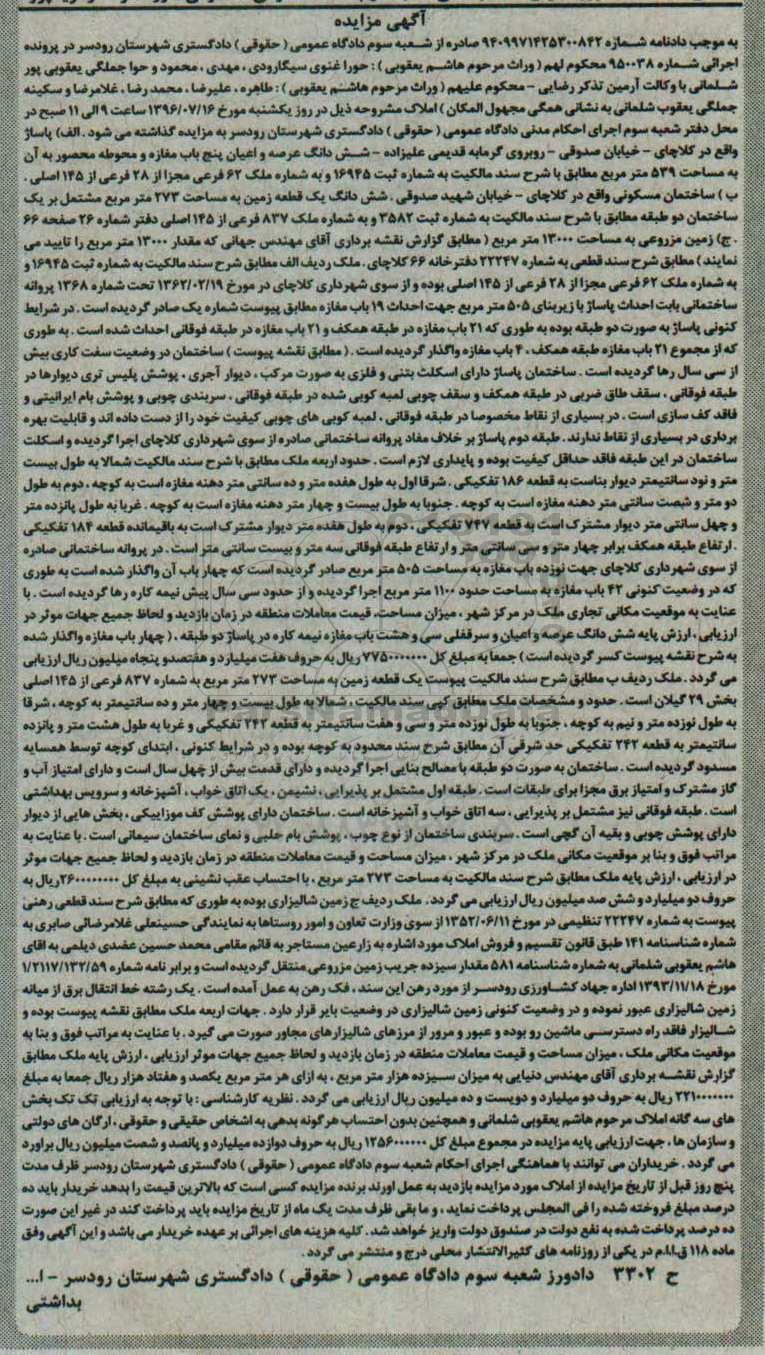 آگهی مزایده
به موجب دادنامه شماره ۹۴۰۹۹۷۱۴۲۵۳۰۰۸۴۲ صادره از شعبه سوم دادگاه عمومی ( حقوقی ) دادگستری شهرستان رودسر در پرونده
اجرائی شماره ۹۵۰۰۳۸ محکوم لهم ( وراث مرحوم هاشم یعقوبی ) : حورا غنوی سیگارودی ، مهدی ، محمود و حوا جملگی یعقوبی پور
شلمانی با وکالت آرمین تذکر رضایی – محکوم علیهم ( وراث مرحوم هاشم یعقوبی ) : طاهره ، علیرضا ، محمد رضا ، غلامرضا و سکینه
جملگی یعقوب شلمانی به نشانی همگی مجهول المکان ) املاک مشروحه ذیل در روز یکشنبه مورخ ۱۳۹۶/۰۷/۱۶ ساعت ۹ الی ۱۱ صبح در
محل دفتر شعبه سوم اجرای احکام مدنی دادگاه عمومی ( حقوقی ) دادگستری شهرستان رودسر به مزایده گذاشته می شود . الف) پاساژ
واقع در کلاچای – خیابان صدوقی – روبروی گرمابه قدیمی علیزاده – شش دانگ عرصه و اعیان پنج باب مغازه و محوطه محصور به آن
به مساحت ۵۳۹ متر مربع مطابق با شرح سند مالکیت به شماره ثبت ۱۶۹۴۵ و به شماره ملک ۶۲ فرعی مجزا از ۲۸ فرعی از ۱۴۵ اصلی .
ب ) ساختمان مسکونی واقع در کلاچای – خیابان شهید صدوقی . شش دانگ یک قطعه زمین به مساحت ۲۷۳ متر مربع مشتمل بر یک
ساختمان دو طبقه مطابق با شرح سند مالکیت به شماره ثبت ۳۵۸۲ و به شماره ملک ۸۳۷ فرعی از ۱۴۵ اصلی دفتر شماره ۲۶ صفحه ۶۶
. ج) زمین مزروعی به مساحت ۱۳۰۰۰ متر مربع ( مطابق گزارش نقشه برداری آقای مهندس جهانی که مقدار ۱۳۰۰۰ متر مربع را تایید می
نمایند ) مطابق شرح سند قطعی به شماره ۲۲۲۴۷ دفترخانه ۶۶ کلاچای . ملک ردیف الف مطابق شرح سند مالکیت به شماره ثبت ۱۶۹۴۵ و
به شماره ملک ۶۲ فرعی مجزا از ۲۸ فرعی از ۱۴۵ اصلی بوده و از سوی شهرداری کلاچای در مورخ ۱۳۶۲/۰۲/۱۹ تحت شماره ۱۳۶۸ پروانه
ساختمانی بابت احداث پاساژ با زیربنای ۵۰۵ متر مربع جهت احداث ۱۹ باب مغازه مطابق پیوست شماره یک صادر گردیده است . در شرایط
کنونی پاساژ به صورت دو طبقه بوده به طوری که ۲۱ باب مغازه در طبقه همکف و ۲۱ باب مغازه در طبقه فوقانی احداث شده است . به طوری
که از مجموع ۲۱ باب مغازه طبقه همکف ، ۴ باب مغازه واگذار گردیده است . ( مطابق نقشه پیوست ) ساختمان در وضعیت سفت کاری بیش
از سی سال رها گردیده است . ساختمان پاساژ دارای اسکلت بتنی و فلزی به صورت مرکب ، دیوار آجری ، پوشش پلیس تری دیوارها در
طبقه فوقانی ، سقف طاق ضربی در طبقه همکف و سقف چوبی لمبه کوبی شده در طبقه فوقانی ، سربندی چوبی و پوشش بام ایرانیتی و
فاقد کف سازی است . در بسیاری از نقاط مخصوصا در طبقه فوقانی ، لمبه کوبی های چوبی کیفیت خود را از دست داده اند و قابلیت بهره
برداری در بسیاری از نقاط ندارند . طبقه دوم پاساژ بر خلاف مفاد پروانه ساختمانی صادره از سوی شهرداری کلاچای اجرا گردیده و اسکلت
ساختمان در این طبقه فاقد حداقل کیفیت بوده و پایداری لازم است . حدود اربعه ملک مطابق با شرح سند مالکیت شمالا به طول بیست
متر و نود سانتیمتر دیوار بناست به قطعه ۱۸۶ تفکیکی . شرقا اول به طول هفده متر و ده سانتی متر دهنه مغازه است به کوچه ، دوم به طول
دو متر و شصت سانتی متر دهنه مغازه است به کوچه . جنوبا به طول بیست و چهار متر دهنه مغازه است به کوچه . غربا به طول پانزده متر
و چهل سانتی متر دیوار مشترک است به قطعه ۷۴۷ تفکیکی ، دوم به طول هفده متر دیوار مشترک است به باقیمانده قطعه ۱۸۴ تفکیکی
. ارتفاع طبقه همکف برابر چهار متر و سی سانتی متر و ارتفاع طبقه فوقانی سه متر و بیست سانتی متر است . در پروانه ساختمانی صادره
از سوی شهرداری کلاچای جهت نوزده باب مغازه به مساحت ۵۰۵ متر مربع صادر گردیده است که چهار باب آن واگذار شده است به طوری
که در وضعیت کنونی ۴۲ باب مغازه به مساحت حدود ۱۱۰۰ متر مربع اجرا گردیده و از حدود سی سال پیش نیمه کاره رها گردیده است . با
عنایت به موقعیت مکانی تجاری ملک در مرکز شهر ، میزان مساحت، قیمت معاملات منطقه در زمان بازدید و لحاظ جمیع جهات موثر در
ارزیابی ، ارزش پایه شش دانگ عرصه و اعیان و سرقفلی سی و هشت باب مغازه نیمه کاره در پاساژ دو طبقه ، ( چهار باب مغازه واگذار شده
به شرح نقشه پیوست کسر گردیده است ) جمعا به مبلغ کل ۷۷۵۰۰۰۰۰۰۰ ریال به حروف هفت میلیارد و هفتصدو پنجاه میلیون ریال ارزیابی
می گردد . ملک ردیف ب مطابق شرح سند مالکیت پیوست یک قطعه زمین به مساحت ۲۷۳ متر مربع به شماره ۸۳۷ فرعی از ۱۴۵ اصلی
بخش ۲۹ گیلان است . حدود و مشخصات ملک مطابق کپی سند مالکیت ، شمالا به طول بیست و چهار متر و ده سانتیمتر به کوچه ، شرقا
به طول نوزده متر و نیم به کوچه ، جنوبا به طول نوزده متر و سی و هفت سانتیمتر به قطعه ۲۴۳ تفکیکی و غربا به طول هشت متر و پانزده
سانتیمتر به قطعه ۲۴۲ تفکیکی حد شرقی آن مطابق شرح سند محدود به کوچه بوده و در شرایط کنونی ، ابتدای کوچه توسط همسایه
مسدود گردیده است . ساختمان به صورت دو طبقه با مصالح بنایی اجرا گردیده و دارای قدمت بیش از چهل سال است و دارای امتیاز آب و
گاز مشترک و امتیاز برق مجزا برای طبقات است . طبقه اول مشتمل بر پذیرایی ، نشیمن ، یک اتاق خواب ، آشپزخانه و سرویس بهداشتی
است . طبقه فوقانی نیز مشتمل بر پذیرایی ، سه اتاق خواب و آشپزخانه است . ساختمان دارای پوشش کف موزاییکی ، بخش هایی از دیوار
دارای پوشش چوبی و بقیه آن گچی است . سربندی ساختمان از نوع چوب ، پوشش بام حلبی و نمای ساختمان سیمانی است . با عنایت به
مراتب فوق و بنا بر موقعیت مکانی ملک در مرکز شهر ، میزان مساحت و قیمت معاملات منطقه در زمان بازدید و لحاظ جمیع جهات موثر
در ارزیابی ، ارزش پایه ملک مطابق شرح سند مالکیت به مساحت ۲۷۳ متر مربع ، با احتساب عقب نشینی به مبلغ کل ۲۶۰۰۰۰۰۰۰۰ ریال به
حروف دو میلیارد و شش صد میلیون ریال ارزیابی می گردد . ملک ردیف ج زمین شالیزاری بوده به طوری که مطابق شرح سند قطعی رهنی
پیوست به شماره ۲۲۲۴۷ تنظیمی در مورخ ۱۳۵۲/۰۶/۱۱ از سوی وزارت تعاون و امور روستاها به نمایندگی حسینعلی غلامرضائی صابری به
شماره شناسنامه ۱۴۱ طبق قانون تقسیم و فروش املاک مورد اشاره به زارعین مستاجر به قائم مقامی محمد حسین عضدی دیلمی به اقای
هاشم یعقوبی شلمانی به شماره شناسنامه ۵۸۱ مقدار سیزده جریب زمین مزروعی منتقل گردیده است و برابر نامه شماره ۱/۲۱۱۷/۱۳۲/۵۹
مورخ ۱۳۹۳/۱۱/۱۸ اداره جهاد کشاورزی رودسر از مورد رهن این سند ، فک رهن به عمل آمده است . یک رشته خط انتقال برق از میانه
زمین شالیزاری عبور نموده و در وضعیت کنونی زمین شالیزاری در وضعیت بایر قرار دارد . جهات اربعه ملک مطابق نقشه پیوست بوده و
شالیزار فاقد راه دسترسی ماشین رو بوده و عبور و مرور از مرزهای شالیزارهای مجاور صورت می گیرد . با عنایت به مراتب فوق و بنا به
موقعیت مکانی ملک ، میزان مساحت و قیمت معاملات منطقه در زمان بازدید و لحاظ جمیع جهات موثر ارزیابی ، ارزش پایه ملک مطابق
گزارش نقشه برداری آقای مهندس دنیایی به میزان سیزده هزار متر مربع ، به ازای هر متر مربع یکصد و هفتاد هزار ریال جمعا به مبلغ
۲۲۱۰۰۰۰۰۰۰ ریال به حروف دو میلیارد و دویست و ده میلیون ریال ارزیابی می گردد . نظریه کارشناسی : با توجه به ارزیابی تک تک بخش
های سه گانه املاک مرحوم هاشم یعقوبی شلمانی و همچنین بدون احتساب هرگونه بدهی به اشخاص حقیقی و حقوقی ، ارگان های دولتی
و سازمان ها ، جهت ارزیابی پایه مزایده در مجموع مبلغ کل ۱۲۵۶۰۰۰۰۰۰ ریال به حروف دوازده میلیارد و پانصد و شصت میلیون ریال براورد
می گردد . خریداران می توانند با هماهنگی اجرای احکام شعبه سوم دادگاه عمومی ( حقوقی ) دادگستری شهرستان رودسر ظرف مدت
پنج روز قبل از تاریخ مزایده از املاک مورد مزایده بازدید به عمل اورند برنده مزایده کسی است که بالاترین قیمت را بدهد خریدار باید ده
درصد مبلغ فروخته شده را فی المجلس پرداخت نماید ، و ما بقی ظرف مدت یک ماه از تاریخ مزایده باید پرداخت کند در غیر این صورت
ده درصد پرداخت شده به نفع دولت در صندوق دولت واریز خواهد شد . کلیه هزینه های اجرائی بر عهده خریدار می باشد و این آگهی وفق
ماده ۱۱۸ ق.ا.ا.م در یکی از روزنامه های کثیرالانتشار محلی درج و منتشر می گردد .
ح ۳۳۰۲ دادورز شعبه سوم دادگاه عمومی ( حقوقی ) دادگستری شهرستان رودسر – ا...
بداشتی